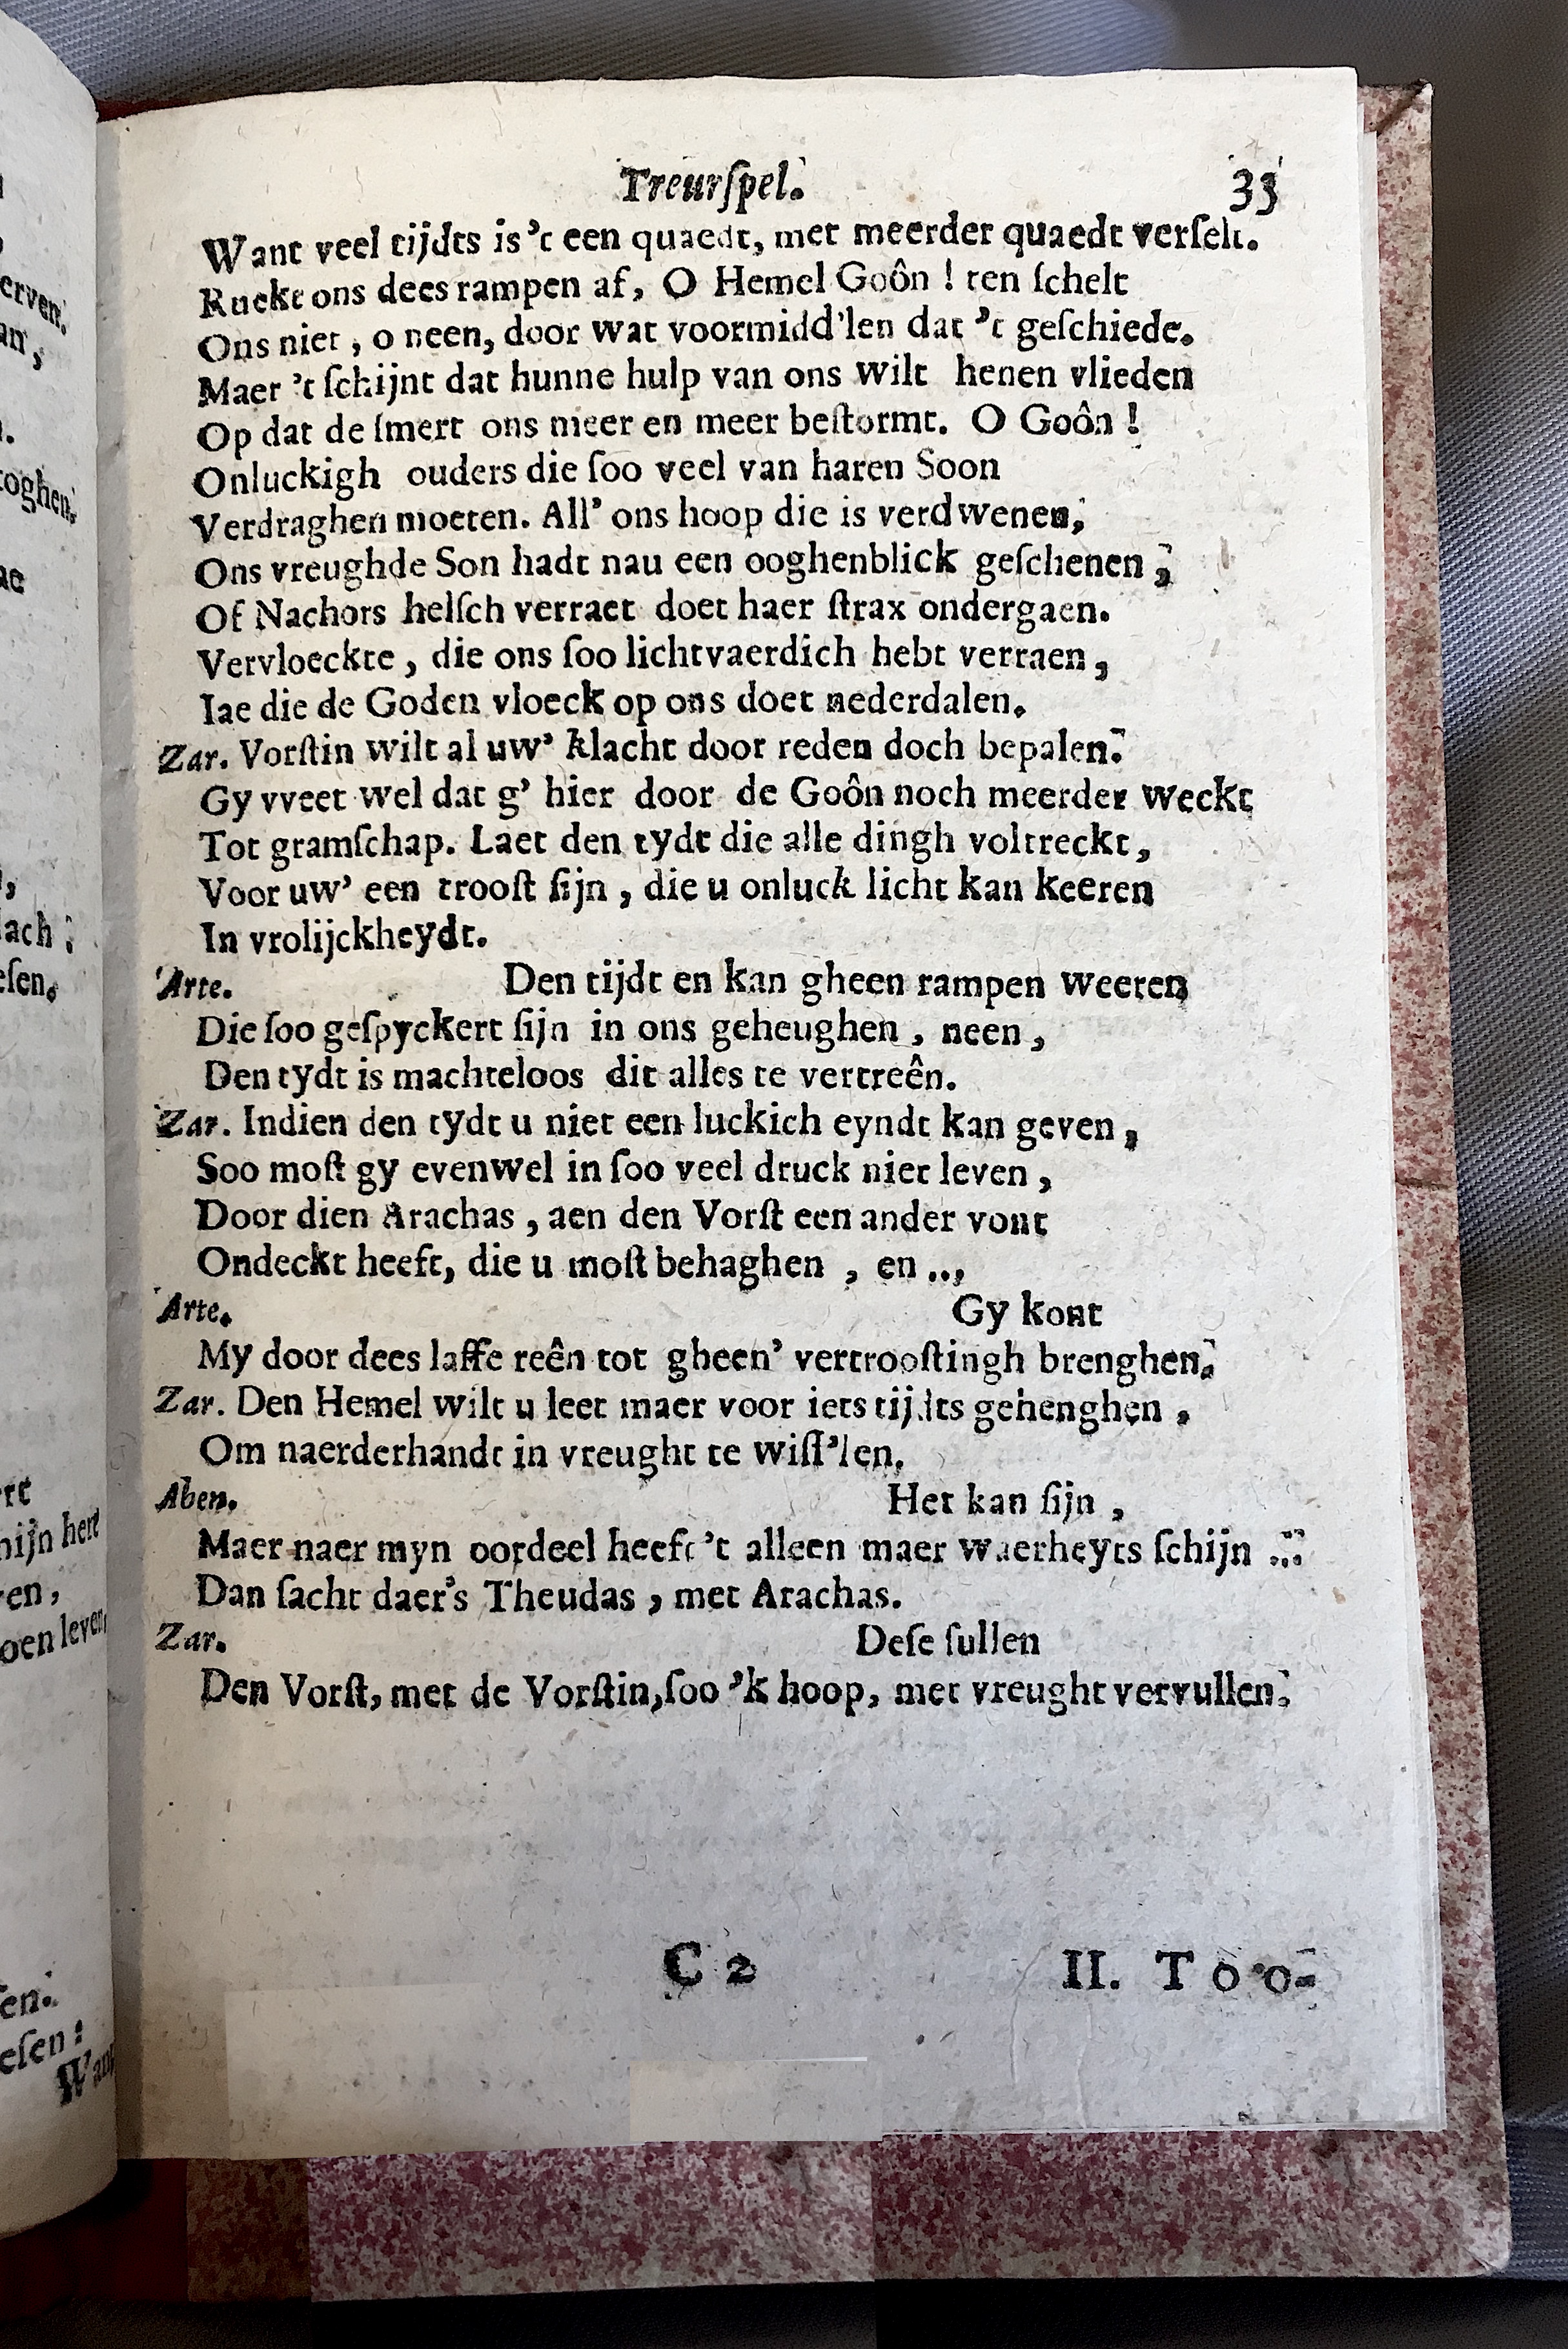 Treurſpel. 33
Want veel tijdts is 't een quaedt, met meerder quaedt verſelt.
Ruckt ons dees rampen af, O Hemel Goôn ! ten ſchelt
Ons niet, o neen, door wat voormidd'len dat 't geſchiede.
Maer 't ſchijnt dat hunne hulp van ons wilt henen vlieden
Op dat de ſmert ons meer en meer beſtormt. O Goôn !
Onluckigh ouders die ſoo veel van haren Soon
Verdraghen moeten. All' ons hoop die is verdwenen,
Ons vreughde Son hadt nau een ooghenblick geſchenen,
Of Nachors helſch verraet doet haer ſtrax ondergaen.
Vervloeckte, die ons ſoo lichtvaerdich hebt verraen,
Iae die de Goden vloeck op ons doet nederdalen.
Zar. Vorſtin wilt al uw' klacht door reden doch bepalen.
Gy vveet wel dat g' hier door de Goôn noch meerder weckt
Tot gramſchap. Laet den tydt die alle dingh voltreckt,
Voor uw' een trooſt ſijn, die u onluck licht kan keeren
In vrolijckheydt.
Arte. Den tijdt en kan gheen rampen weeren
Die ſoo geſpyckert ſijn in ons geheughen, neen,
Den tydt is machteloos dit alles te vertreên.
Zar. Indien den tydt u niet een luckich eyndt kan geven,
Soo moſt gy evenwel in ſoo veel druck niet leven,
Door dien Arachas, aen den Vorſt een ander vont
Ondeckt heeft, die u moſt behaghen, en ..,
Arte. Gy kont
My door dees laffe reên tot gheen' vertrooſtingh brenghen.
Zar. Den Hemel wilt u leet maer voor iets tijdts gehenghen,
Om naerderhandt in vreught te wiſſ'len.
Aben. Het kan ſijn,
Maer naer myn oordeel heeft 't alleen maer waerheyts ſchijn ...
Dan ſacht daer's Theudas, met Arachas.
Zar. Deſe ſullen
Den Vorſt, met de Vorſtin, ſoo 'k hoop, met vreught vervullen.
C 2 II. Too-